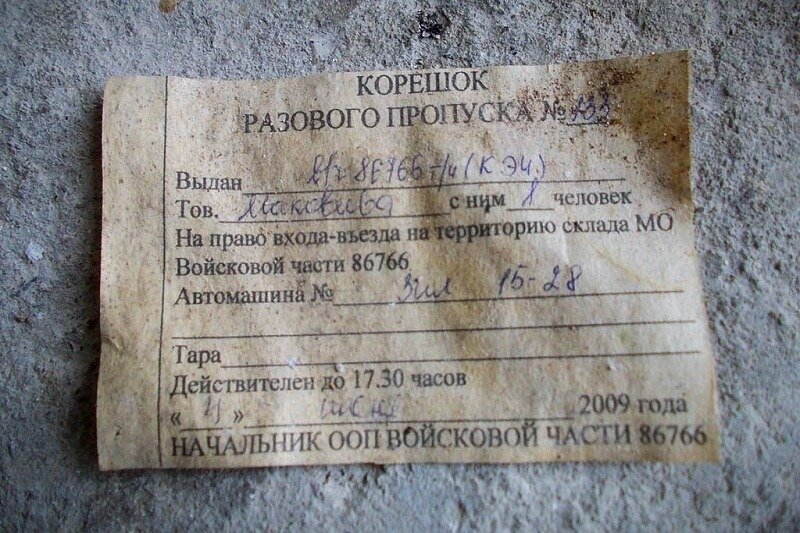 КОРЕШОК
РАЗОВОГО ПРОПУСКА № 133
Выдан в/ч 86766 (КЭЧ)
Тов. с ним 8 человек
На право входа-въезда на территорию склада МО
Войсковой части 86766
Автомашина № Зил 15-28
Тара
Действителен до 17.30 часов
« » 2009 года
НАЧАЛЬНИК ООП ВОЙСКОВОЙ ЧАСТИ 86766